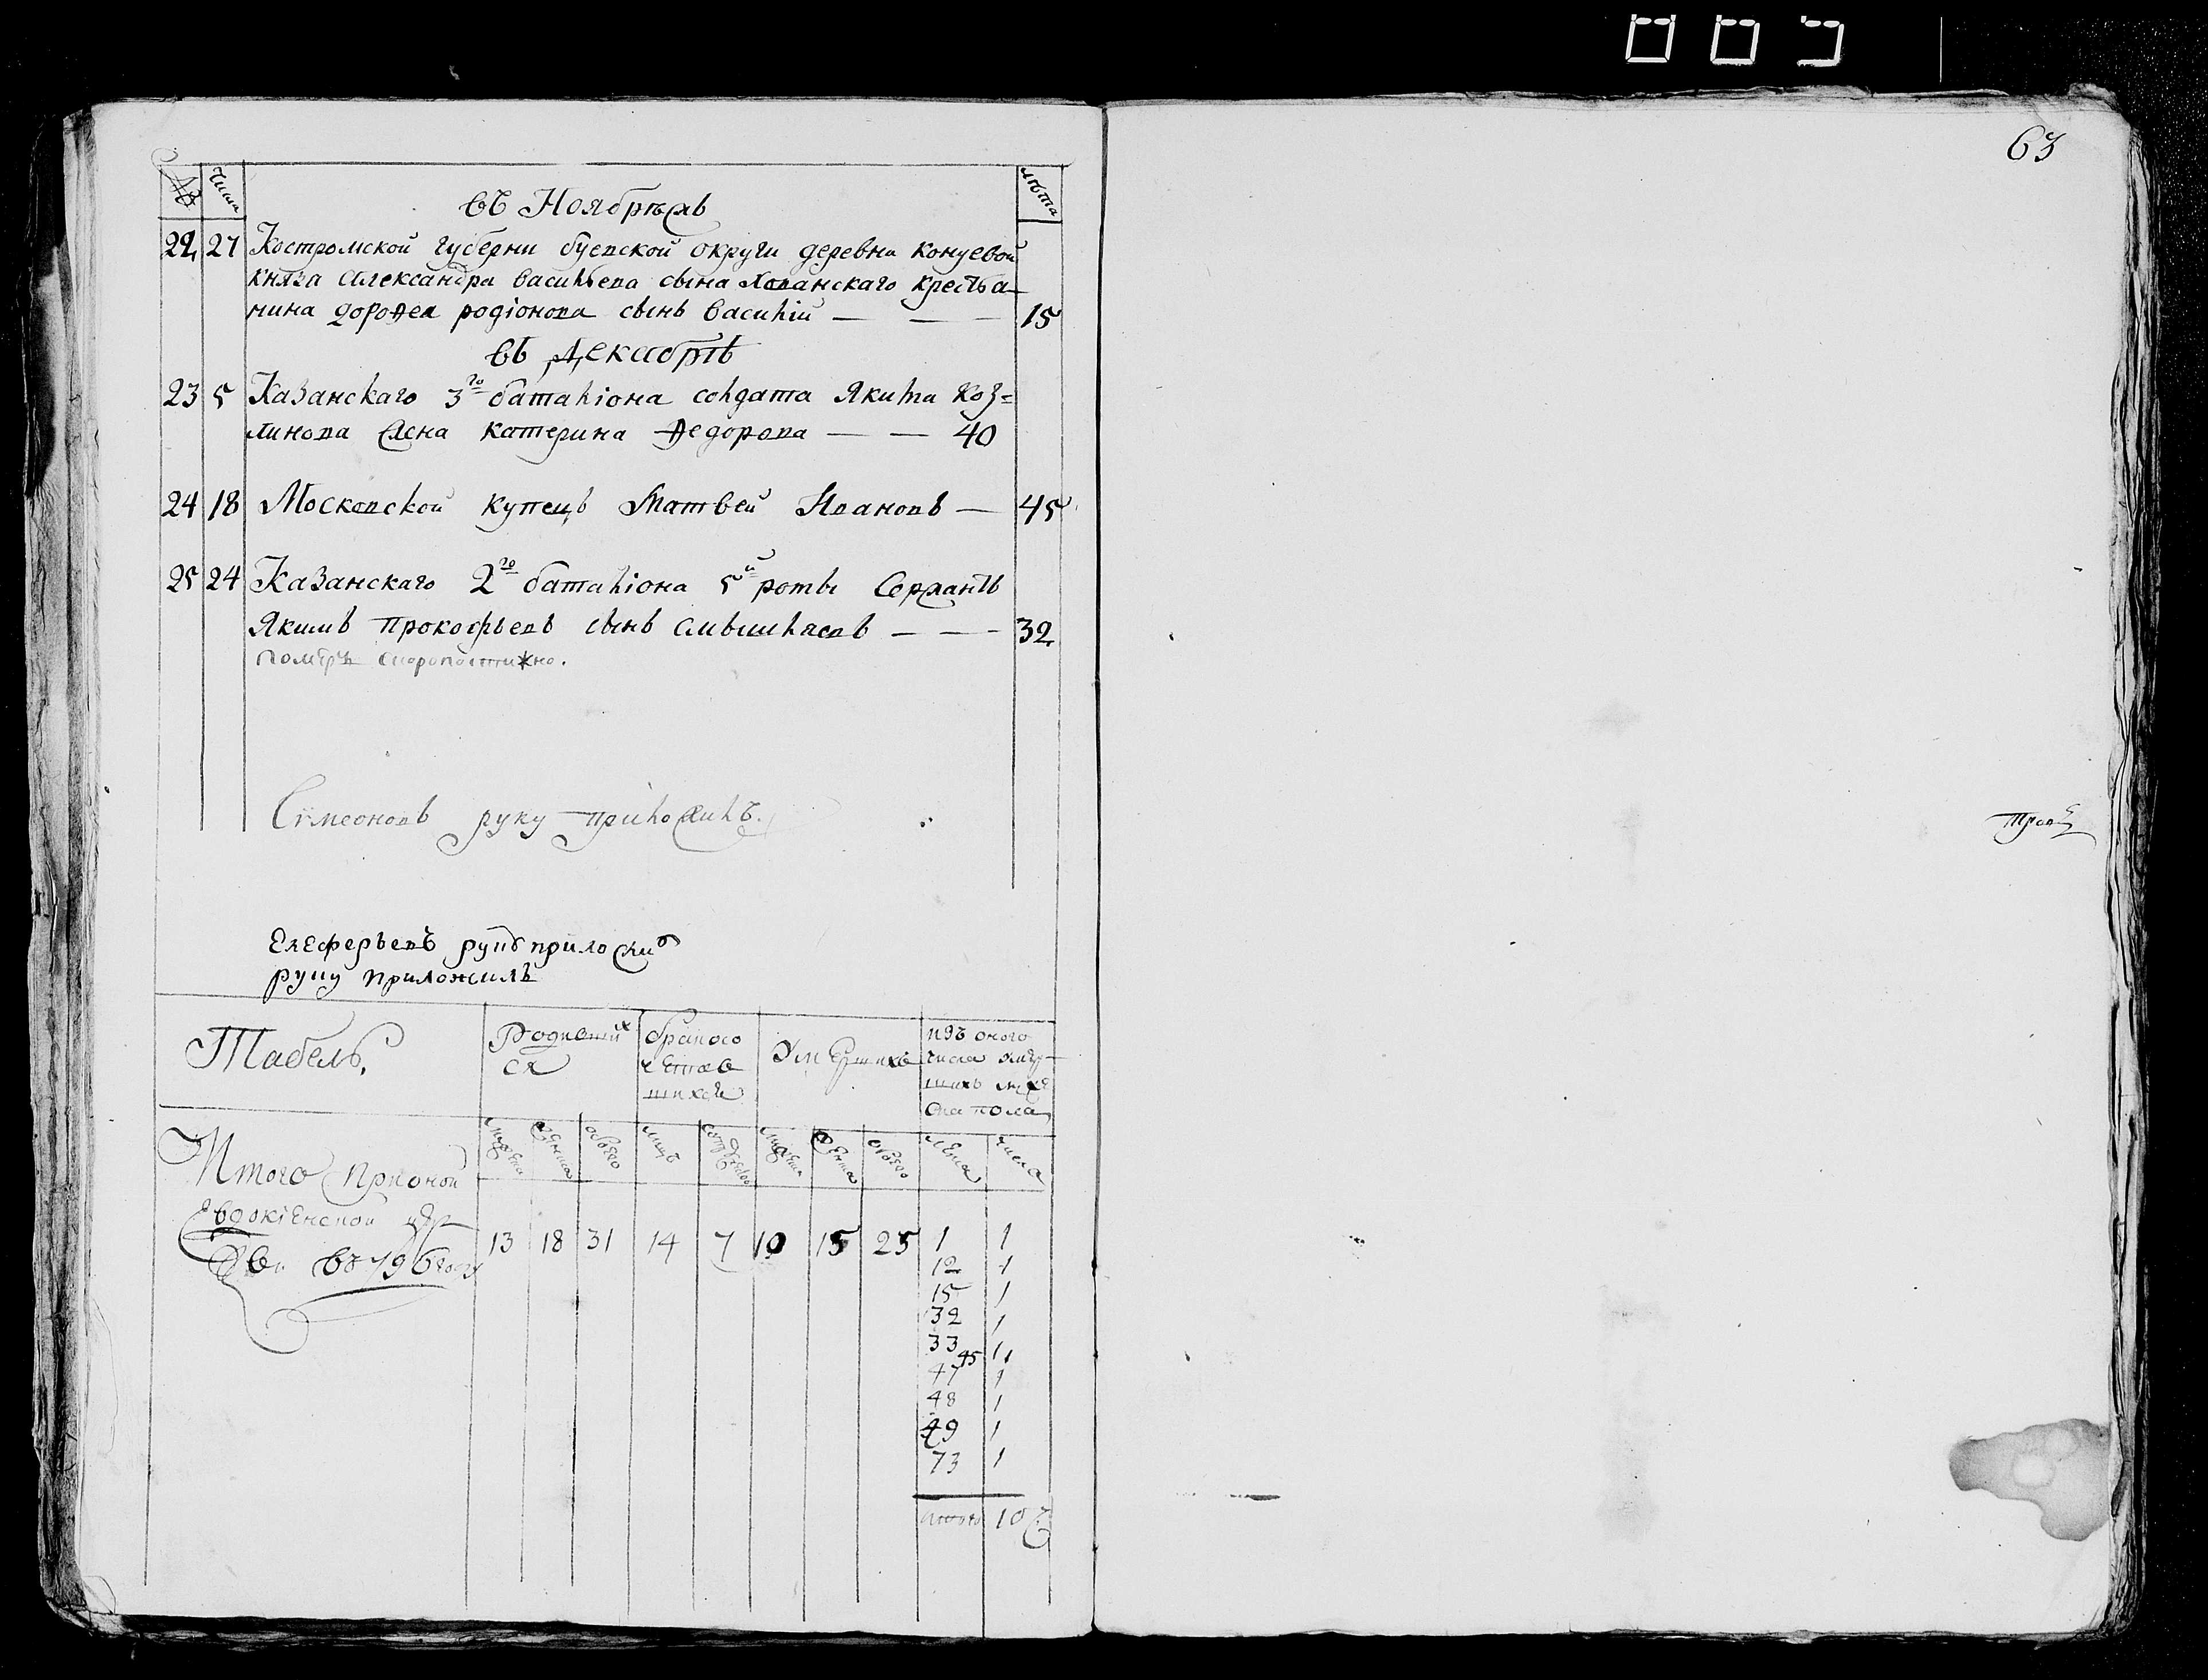 63
№ Числа лѣта
въ Ноябрѣ жъ
22 27 Костромской губерни буевской округи деревни Конуевой
князя Александра Васильева сына Хованскаго крестьа-
нина дорофея родіонова сынъ Василій — — — 15
въ Декабрѣ
23 5 Казанскаго 3го баталіона солдата Якима Коз=
линова жена Катерина Федорова — — 40
24 18 Московской купецъ Матвей Ивановъ — 45
25 24 Казанскаго 2го баталіона 5й роты Сержантъ
Якимъ Прокофьевъ сынъ — — — 32
помѣръ скоропостижно.
Сімеоновъ руку приложилъ.
Елеферьевъ руку приложи
руку приложилъ
Табель,
Родивших
ся
бракосо
четав
шихся
Умершихъ
изъ оного
числа умер
шихъ муже
ска пола
мужеска женска обоего лицъ мужеска женска обоего лета числа
Итого При оной
Евдокіенской цер
кви въ 796 году
13 18 31 14 7 10 15 25 1 1
12 1
15 1
32 1
33 1
45 1
47 1
48 1
49 1
73 1
итого 10